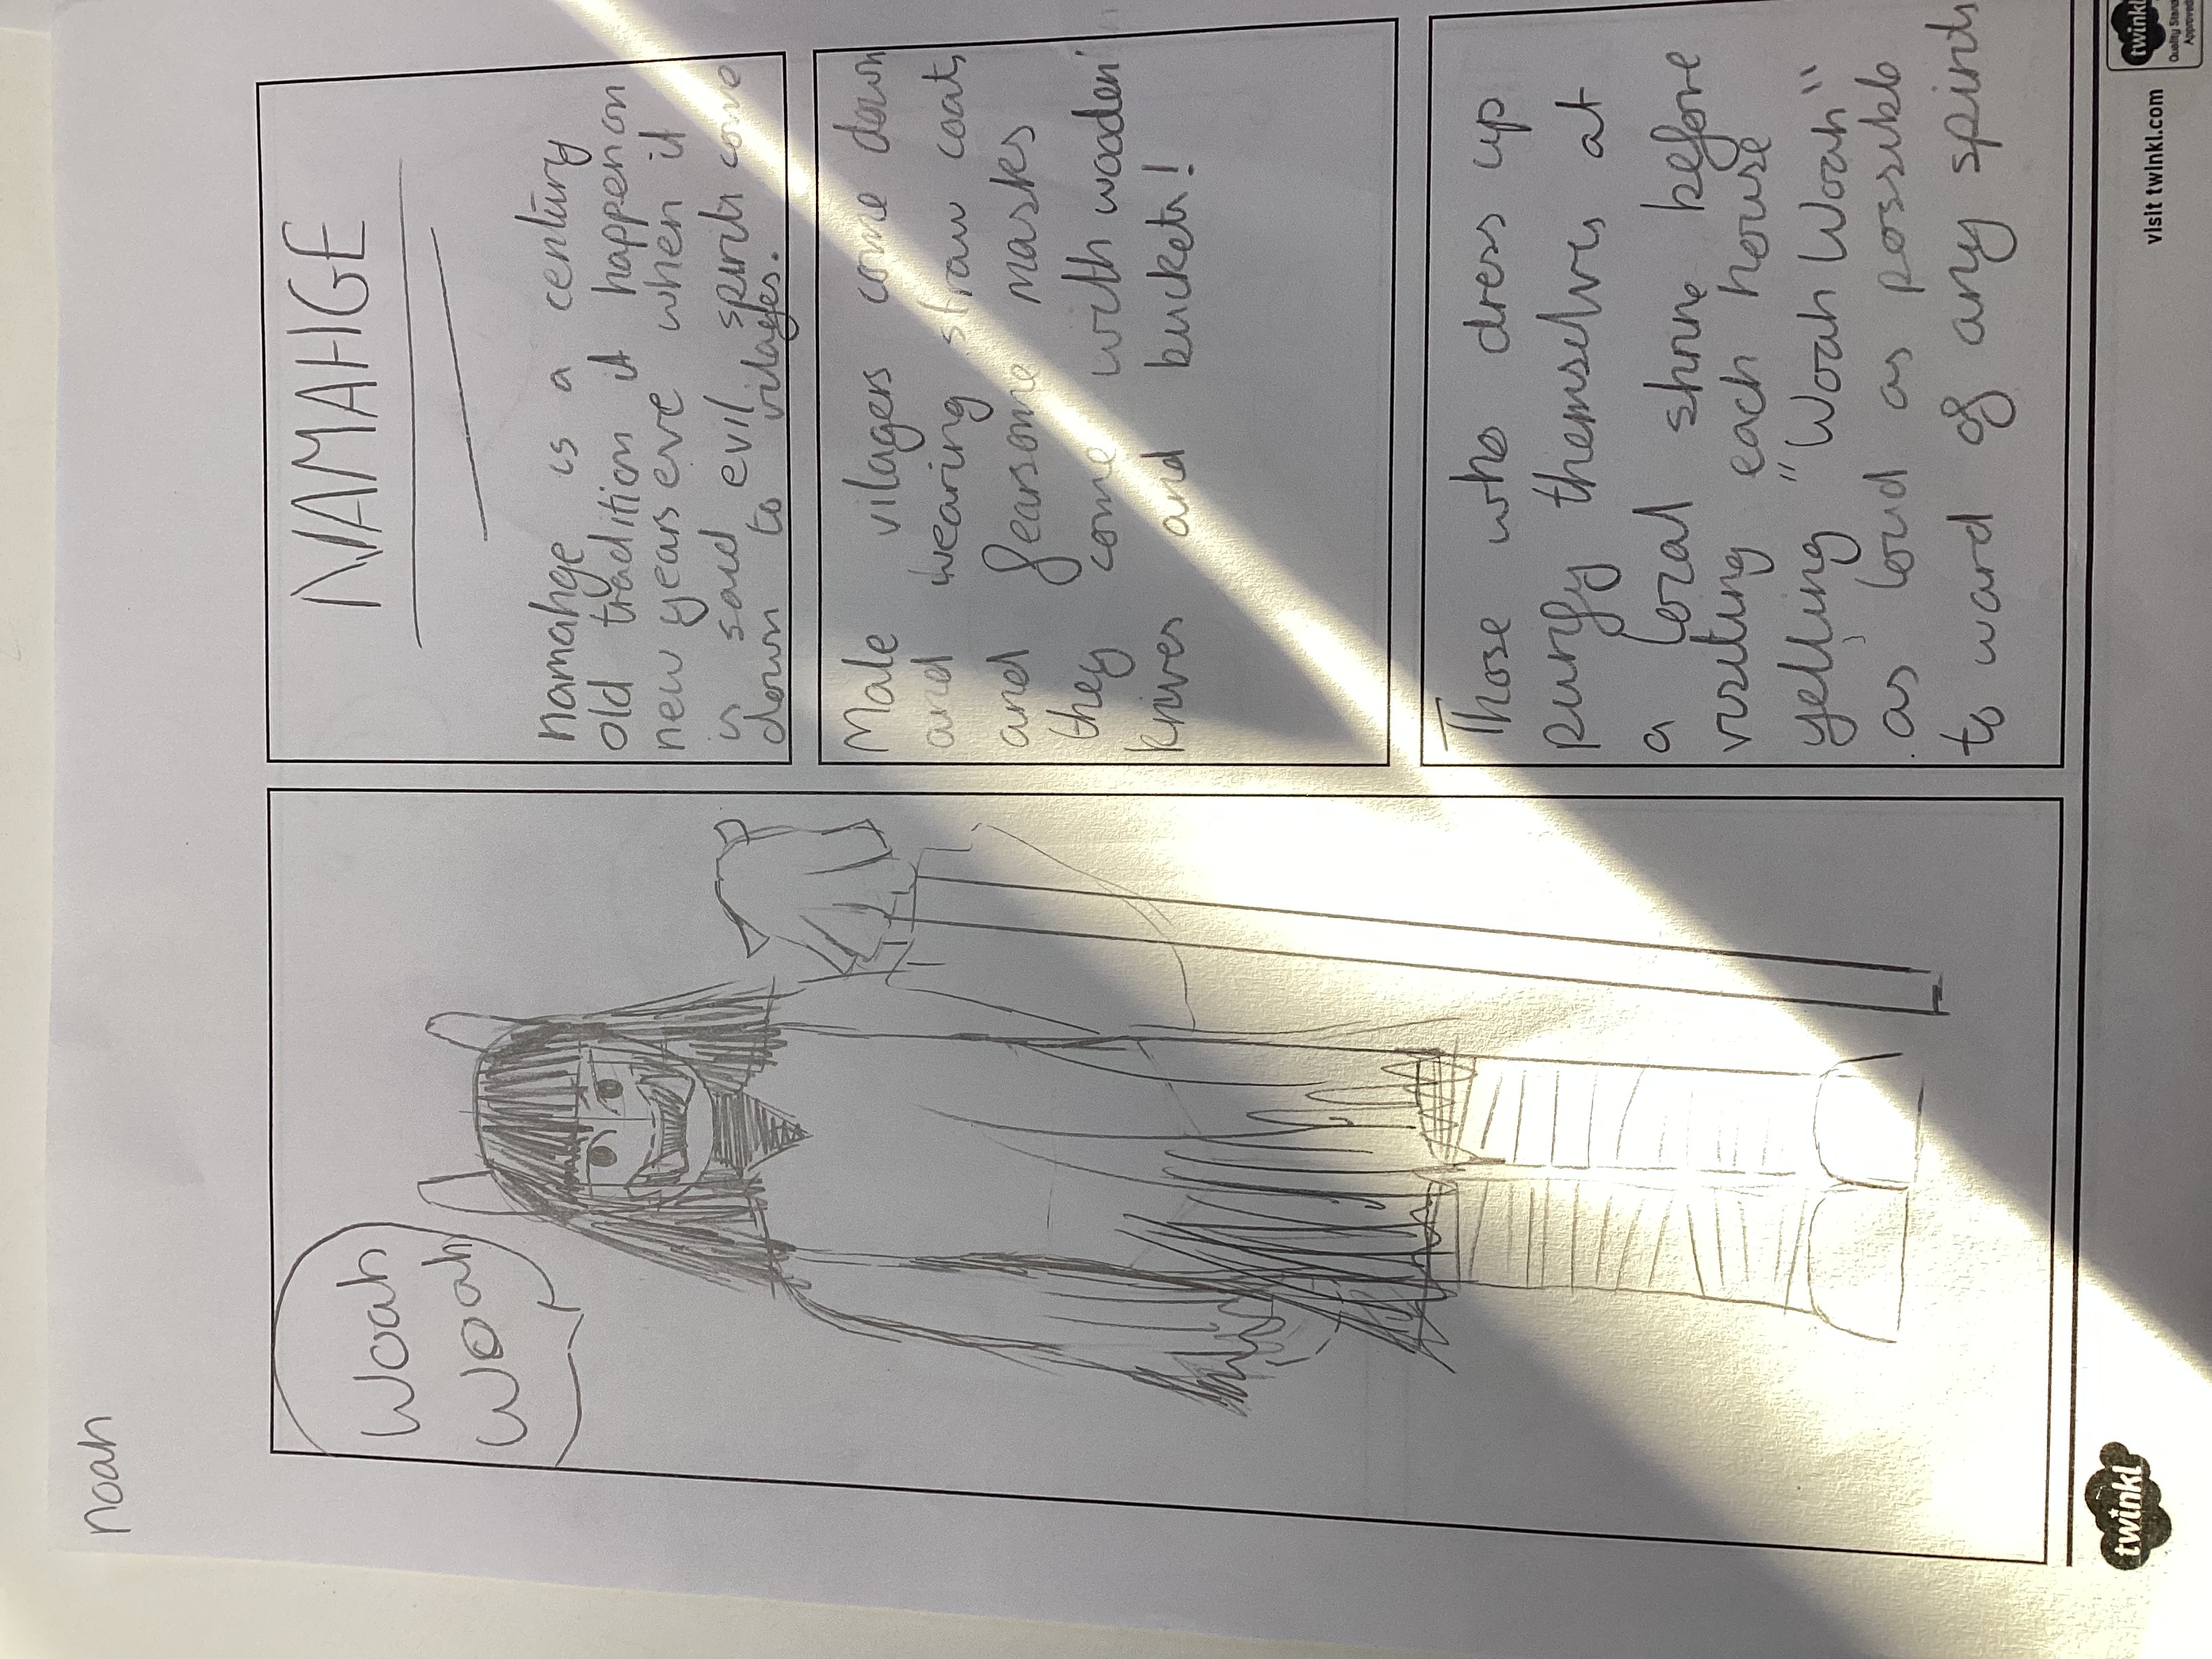 noah
Woah
Woah
NAMAHGE
namahge is a century
old tradition it happen on
new years eve when it
is said evil spirits come
down to vilages.
Male vilagers come down
and wearing straw coats
and fearsome masks
they come with wooden
knives and buckets!
Those who dress up
purify themselves at
a local shrine before
visiting each house
yelling "Woah Woah"
as loud as possible
to ward of any spirits
twinkl
visit twinkl.com
twinkl
Quality Standard
Approved